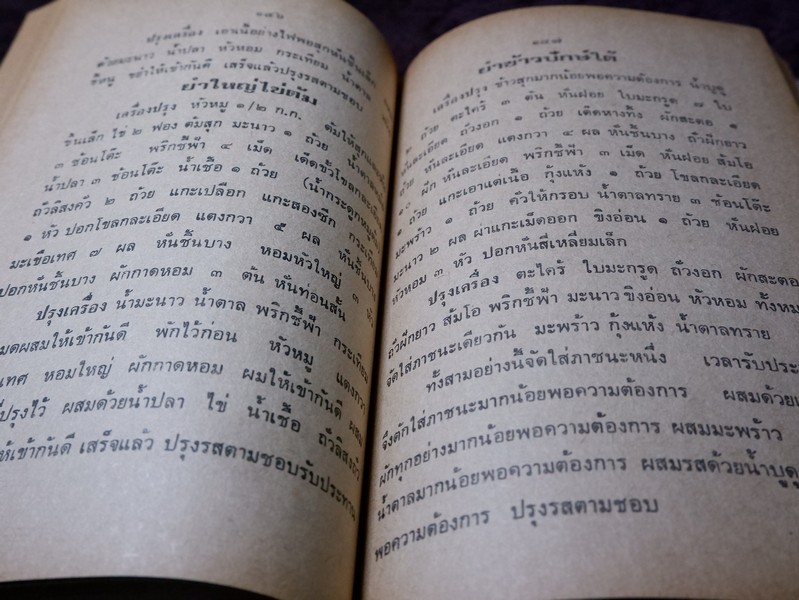 ๑๔๖
ปรุงเครื่อง เอาเนื้อย่างไฟพอสุกหั่นชิ้นเล็ก
ด้วยมะนาว น้ำปลา หัวหอม กระเทียม น้ำตาล
ขี้หนู ขยำให้เข้ากันดี เสร็จแล้วปรุงรสตามชอบ
ยำใหญ่ไข่ต้ม
เครื่องปรุง หัวหมู ๑/๒ ก.ก. ต้มให้สุกหั่น
ชิ้นเล็ก ไข่ ๒ ฟอง ต้มสุก มะนาว ๑ ถ้วย น้ำตาล
๓ ช้อนโต๊ะ พริกชี้ฟ้า ๔ เม็ด เด็ดขั้วโขลกละเอียด
น้ำปลา ๓ ช้อนโต๊ะ น้ำเชื้อ ๑ ถ้วย (น้ำกระดูกหมู
ถั่วลิสงคั่ว ๒ ถ้วย แกะเปลือก แกะสองซีก กระเทียม
๑ หัว ปอกโขลกละเอียด แตงกวา ๕ ผล หั่นชิ้นบาง
มะเขือเทศ ๗ ผล หั่นชิ้นบาง หอมหัวใหญ่ ๓ หัว
ปอกหั่นชิ้นบาง ผักกาดหอม ๓ ต้น หั่นท่อนสั้น
ปรุงเครื่อง น้ำมะนาว น้ำตาล พริกชี้ฟ้า กระเทียม
มดผสมให้เข้ากันดี พักไว้ก่อน หัวหมู แตงกวา
เทศ หอมใหญ่ ผักกาดหอม ผมให้เข้ากันดี ผสม
ที่ปรุงไว้ ผสมด้วยน้ำปลา ไข่ น้ำเชื้อ ถั่วลิสงคั่ว
ให้เข้ากันดี เสร็จแล้ว ปรุงรสตามชอบรับประทาน
๑๔๗
ยำข้าวปักษ์ใต้
เครื่องปรุง ข้าวสุกมากน้อยพอความต้องการ น้ำบูดู
๒ ถ้วย ตะไคร้ ๓ ต้น หั่นฝอย ใบมะกรูด ๗ ใบ
หั่นละเอียด ถั่วงอก ๑ ถ้วย เด็ดหางทิ้ง ผักสะตอ ๑
ถ้วย หั่นละเอียด แตงกวา ๔ ผล หั่นชิ้นบาง ถั่วฝักยาว
๑๐ ฝัก หั่นละเอียด พริกชี้ฟ้า ๓ เม็ด หั่นฝอย ส้มโอ
๑ ถ้วย แกะเอาแต่เนื้อ กุ้งแห้ง ๑ ถ้วย โขลกละเอียด
มะพร้าว ๑ ถ้วย คั่วให้กรอบ น้ำตาลทราย ๓ ช้อนโต๊ะ
มะนาว ๒ ผล ผ่าแกะเม็ดออก ขิงอ่อน ๑ ถ้วย หั่นฝอย
หัวหอม ๓ หัว ปอกหั่นสี่เหลี่ยมเล็ก
ปรุงเครื่อง ตะไคร้ ใบมะกรูด ถั่วงอก ผักสะตอ
ถั่วฝักยาว ส้มโอ พริกชี้ฟ้า มะนาว ขิงอ่อน หัวหอม ทั้งหม
จัดใส่ภาชนะเดียวกัน มะพร้าว กุ้งแห้ง น้ำตาลทราย
ทั้งสามอย่างนี้จัดใส่ภาชนะหนึ่ง เวลารับประ
จึงตักใส่ภาชนะมากน้อยพอความต้องการ ผสมด้วย
ผักทุกอย่างมากน้อยพอความต้องการ ผสมมะพร้าว
น้ำตาลมากน้อยพอความต้องการ ผสมรสด้วยน้ำบูดู
พอความต้องการ ปรุงรสตามชอบ